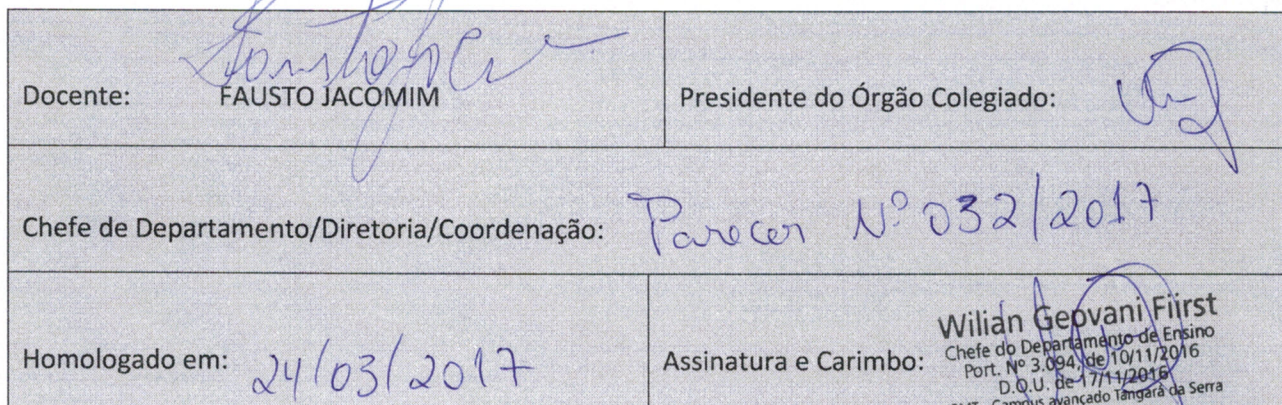 Docente: FAUSTO JACOMIM
Presidente do Órgão Colegiado:
Chefe de Departamento/Diretoria/Coordenação: Parecer Nº 032/2017
Homologado em: 24/03/2017
Assinatura e Carimbo:
Wilian Geovani Fiirst
Chefe do Departamento de Ensino
Port. Nº 3.094, de 10/11/2016
D.O.U. de 17/11/2016
Campus avançado Tangará da Serra